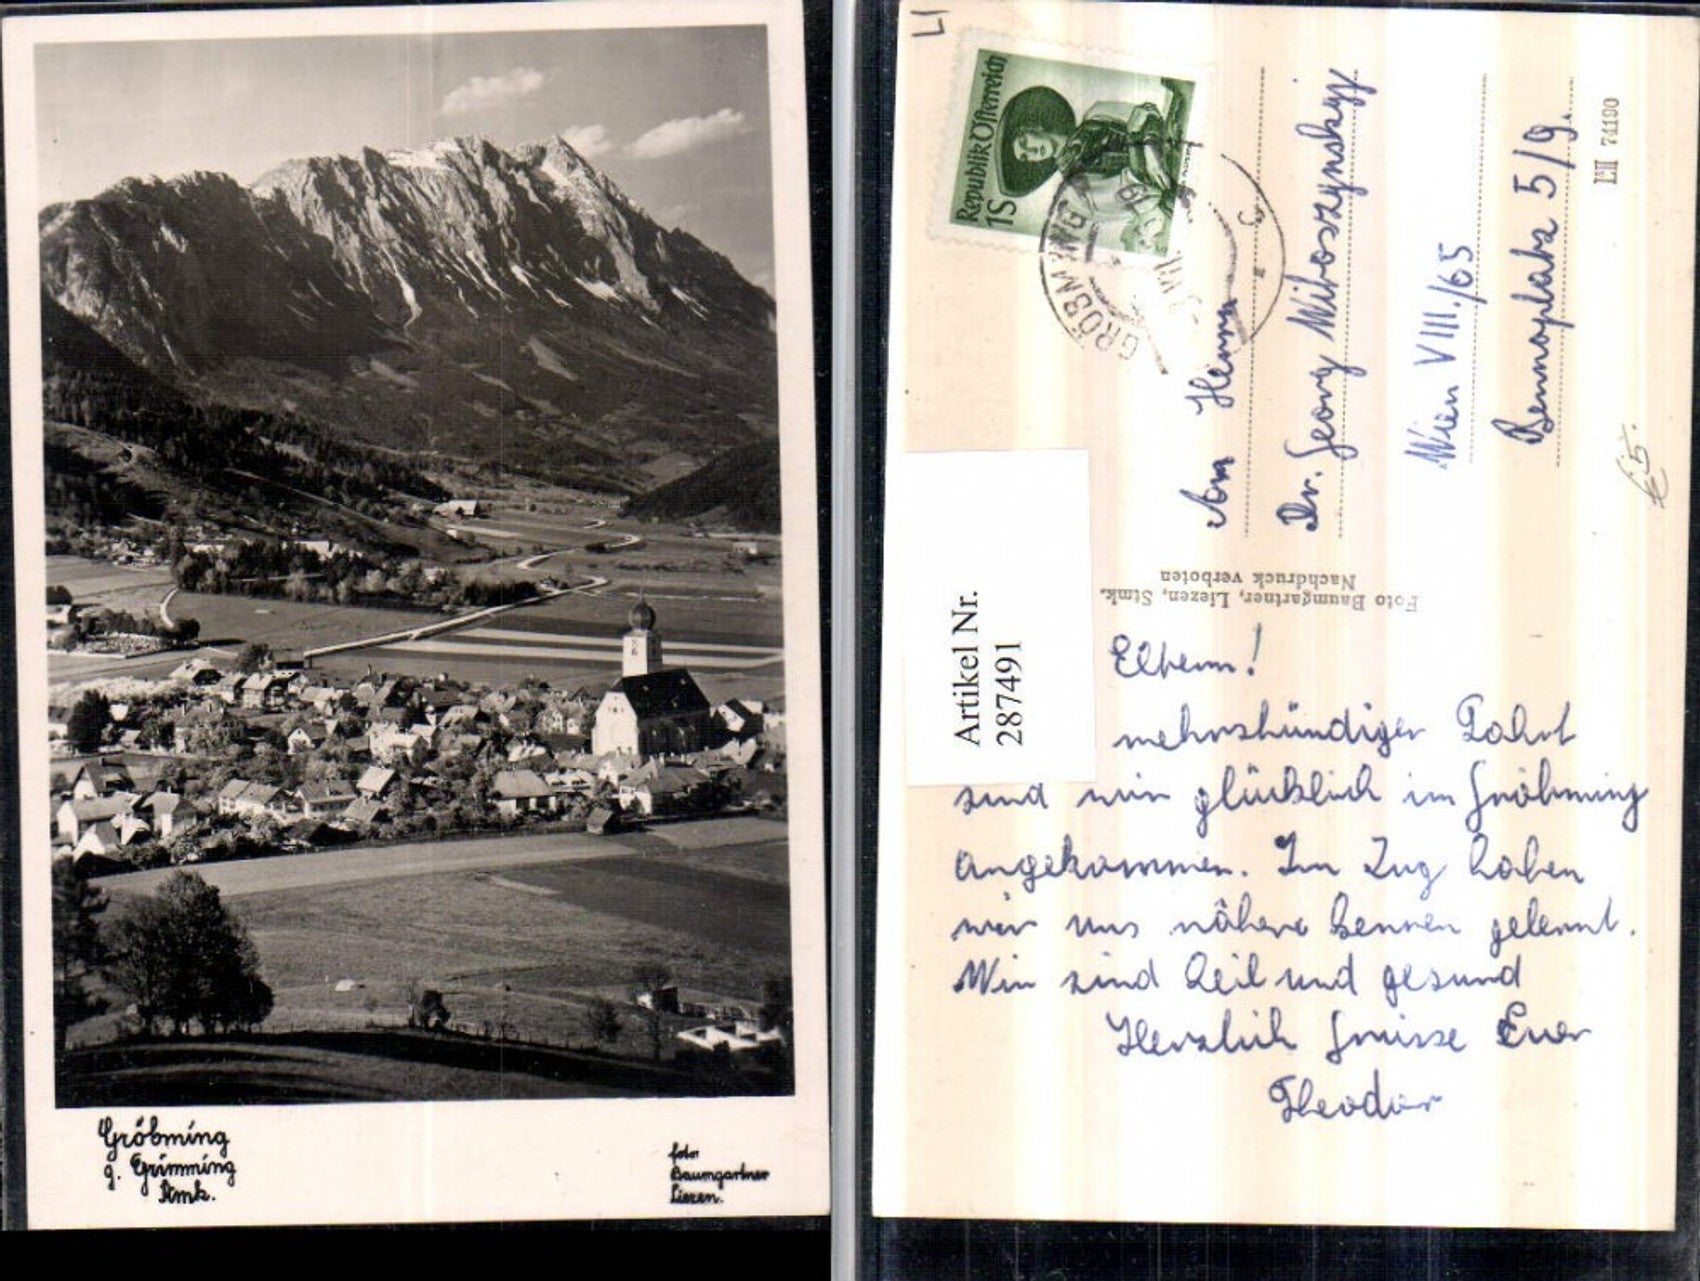 Gröbming
g. Grimming
Stmk.
foto
Baumgartner
Liezen.
Republik Österreich
1S
GRÖBMING
An Herrn
Dr. Georg Miboszynskyj
Wien VIII./65
Bennoplatz 5/9.
LH 74190
€5.
Foto Baumgartner, Liezen, Stmk.
Nachdruck verboten
Artikel Nr.
287491
Eltern!
mehrstündiger Fahrt
sind wir glücklich in Gröbming
angekommen. Im Zug haben
wir uns näher kennen gelernt.
Wir sind heil und gesund
Herzlich Grüsse Euer
Theodor